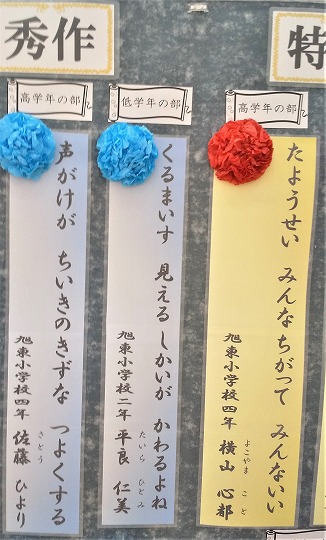 特
高学年の部
たようせい みんなちがって みんないい
旭東小学校四年 横山 心都
よこやま こと
秀作
低学年の部
くるまいす 見えるしかいが かわるよね
旭東小学校二年 平良 仁美
たいら ひとみ
高学年の部
声がけが ちいきのきずな つよくする
旭東小学校四年 佐藤 ひより
さとう